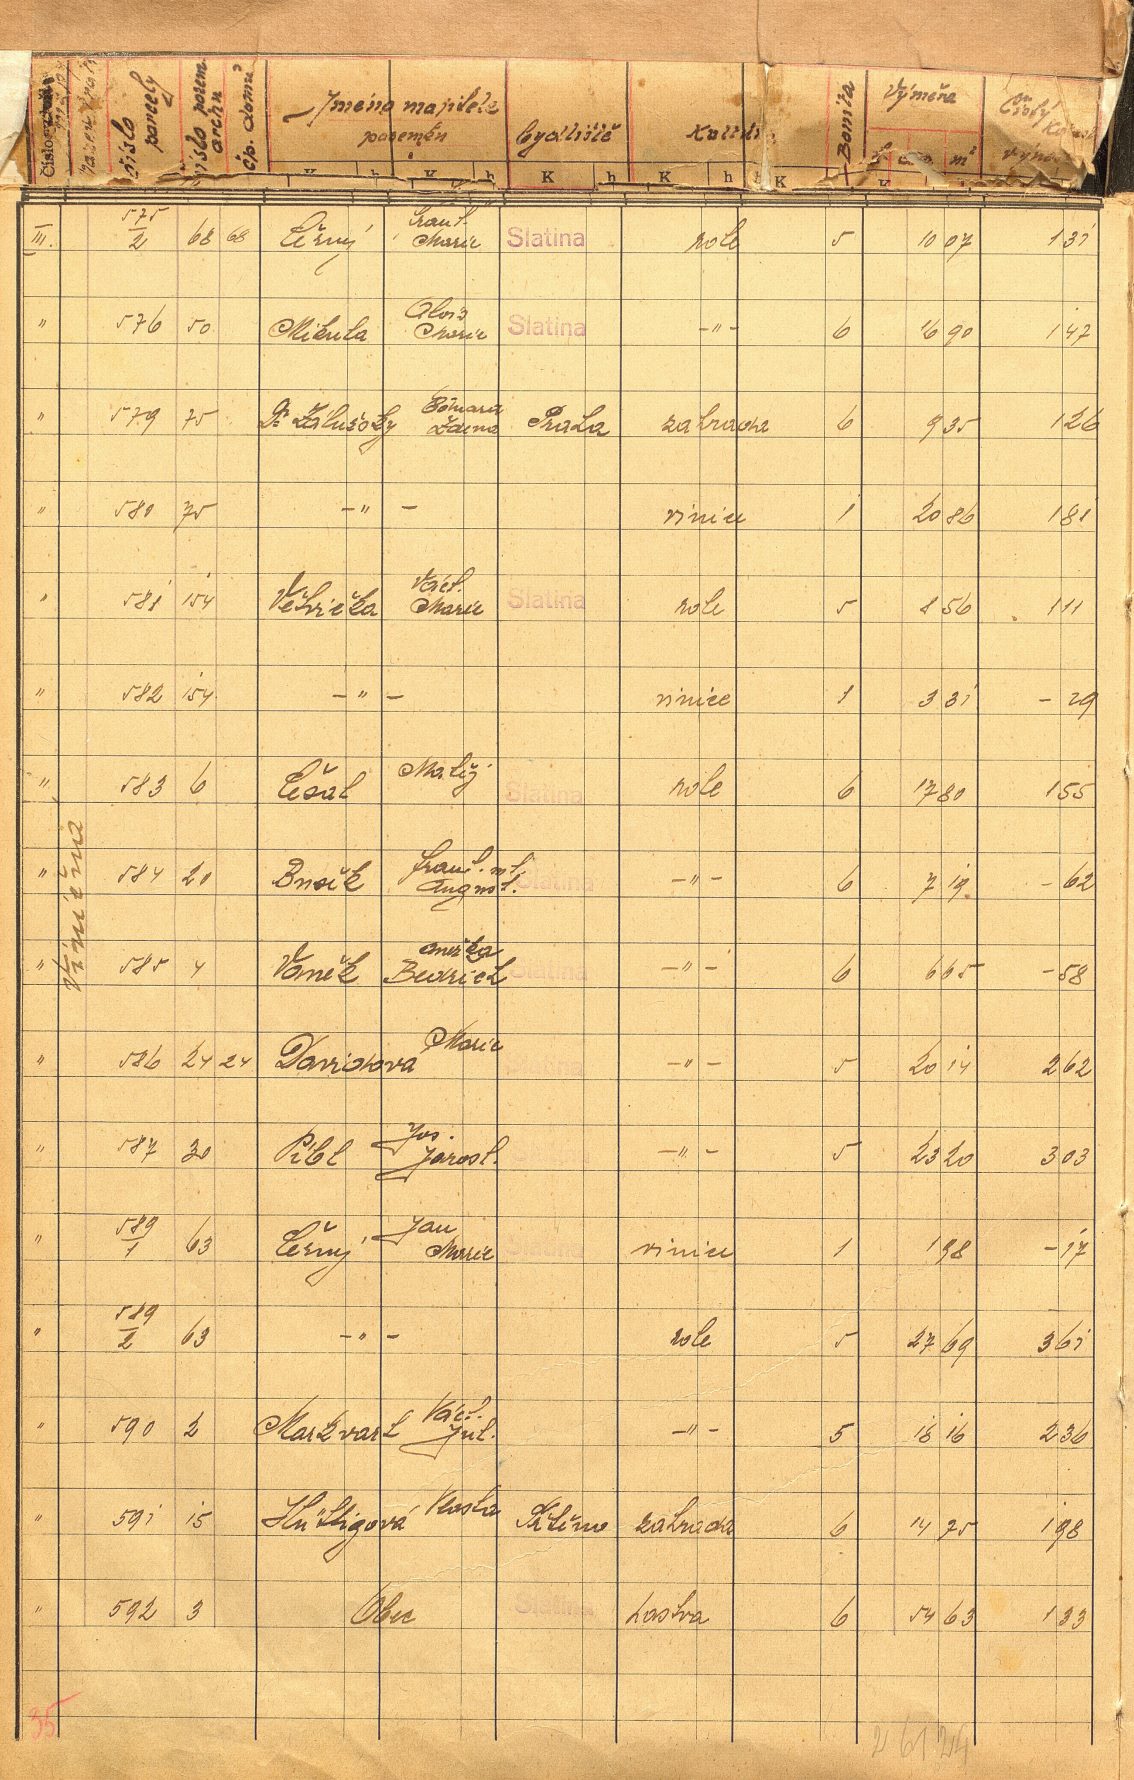 číslo parcely
číslo pozem. archu
čp. domu
Jméno majitele pozemku
bydliště
Kultura
Bonita
Výměra
Čistý
m²
K h K h K h K h
III. 575/2 68 68 Černý Frant. Marie Slatina role 5 10 07 131
" 576 50 Mikula Alois Marie Slatina -"- 6 16 90 147
" 579 75 Dr. Zdena Praha zahrada 6 9 35 126
" 580 75 -"- vinice 1 20 86 181
" 581 154 Větvička Václ. Marie Slatina role 5 8 56 111
" 582 154 -"- vinice 1 3 31 - 29
" 583 6 Češal Matěj Slatina role 6 17 80 155
Viničná
" 584 20 Frant. ml. August. Slatina -"- 6 7 19 - 62
" 585 4 Vaněk Anežka Bedřich Slatina -"- 6 6 65 - 58
" 586 24 24 Davidova Marie Slatina -"- 5 20 14 262
" 587 30 Pibl Jos. Jarosl. Slatina -"- 5 23 20 303
" 589/1 63 Černý Jan Marie Slatina vinice 1 1 98 - 17
" 589/2 63 -"- role 5 27 69 361
" 590 2 Markvart Václ. Jul. -"- 5 18 16 236
" 591 15 Hüttigová Vlasta zahrada 6 14 75 198
" 592 3 Obec Slatina pastva 6 54 63 133
35
2 61 24